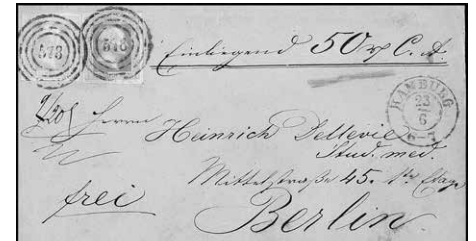 Einliegend 50 rp C. A.
HAMBURG
23
6
6-7
Herrn
Heinrich Dettevie
Stud. med.
Mittelstraße 45. 1te Etage
frei
Berlin.